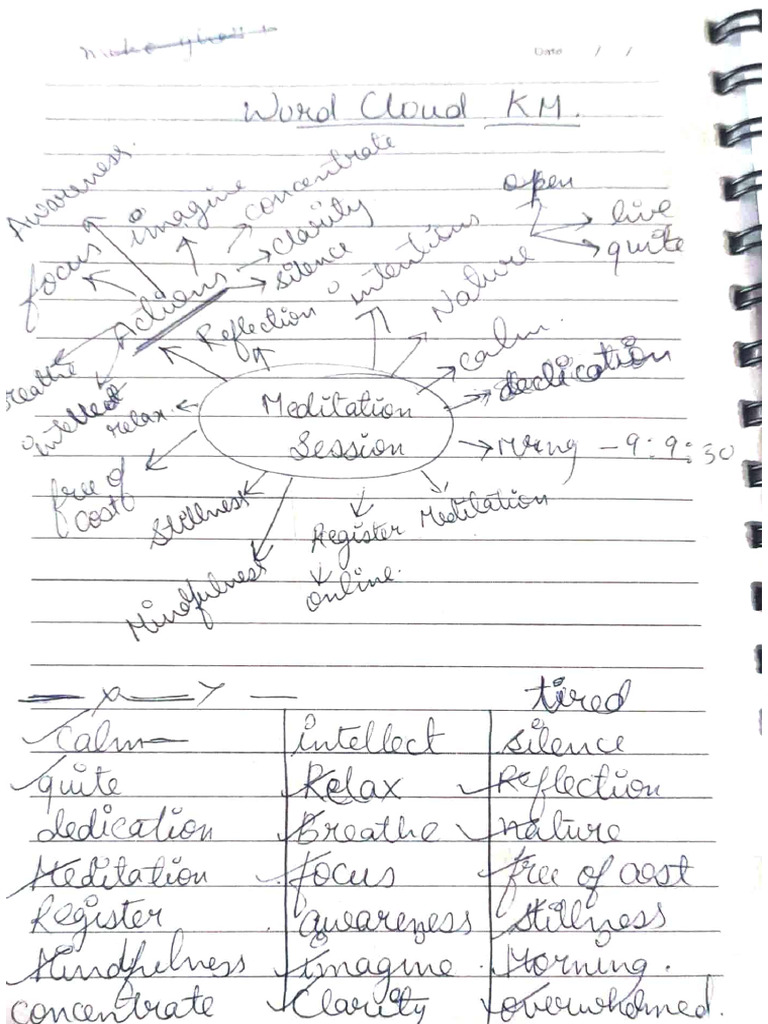 Date / /
Word Cloud KM.
Awareness.
focus
imagine
concentrate
clarity
silence
Actions
breathe
intellect
Reflection
intentions
Nature
open
live
quite
calm.
dedication
Mrng - 9:9:30
Meditation
Session
relax.
free of
cost
Stillness
Mindfulness
Register
online.
Meditation
tired
Calm intellect silence
quite Relax Reflection
dedication Breathe nature
Meditation focus free of cost
Register awareness stillness
Mindfulness imagine Morning.
concentrate Clarity overwhelmed.